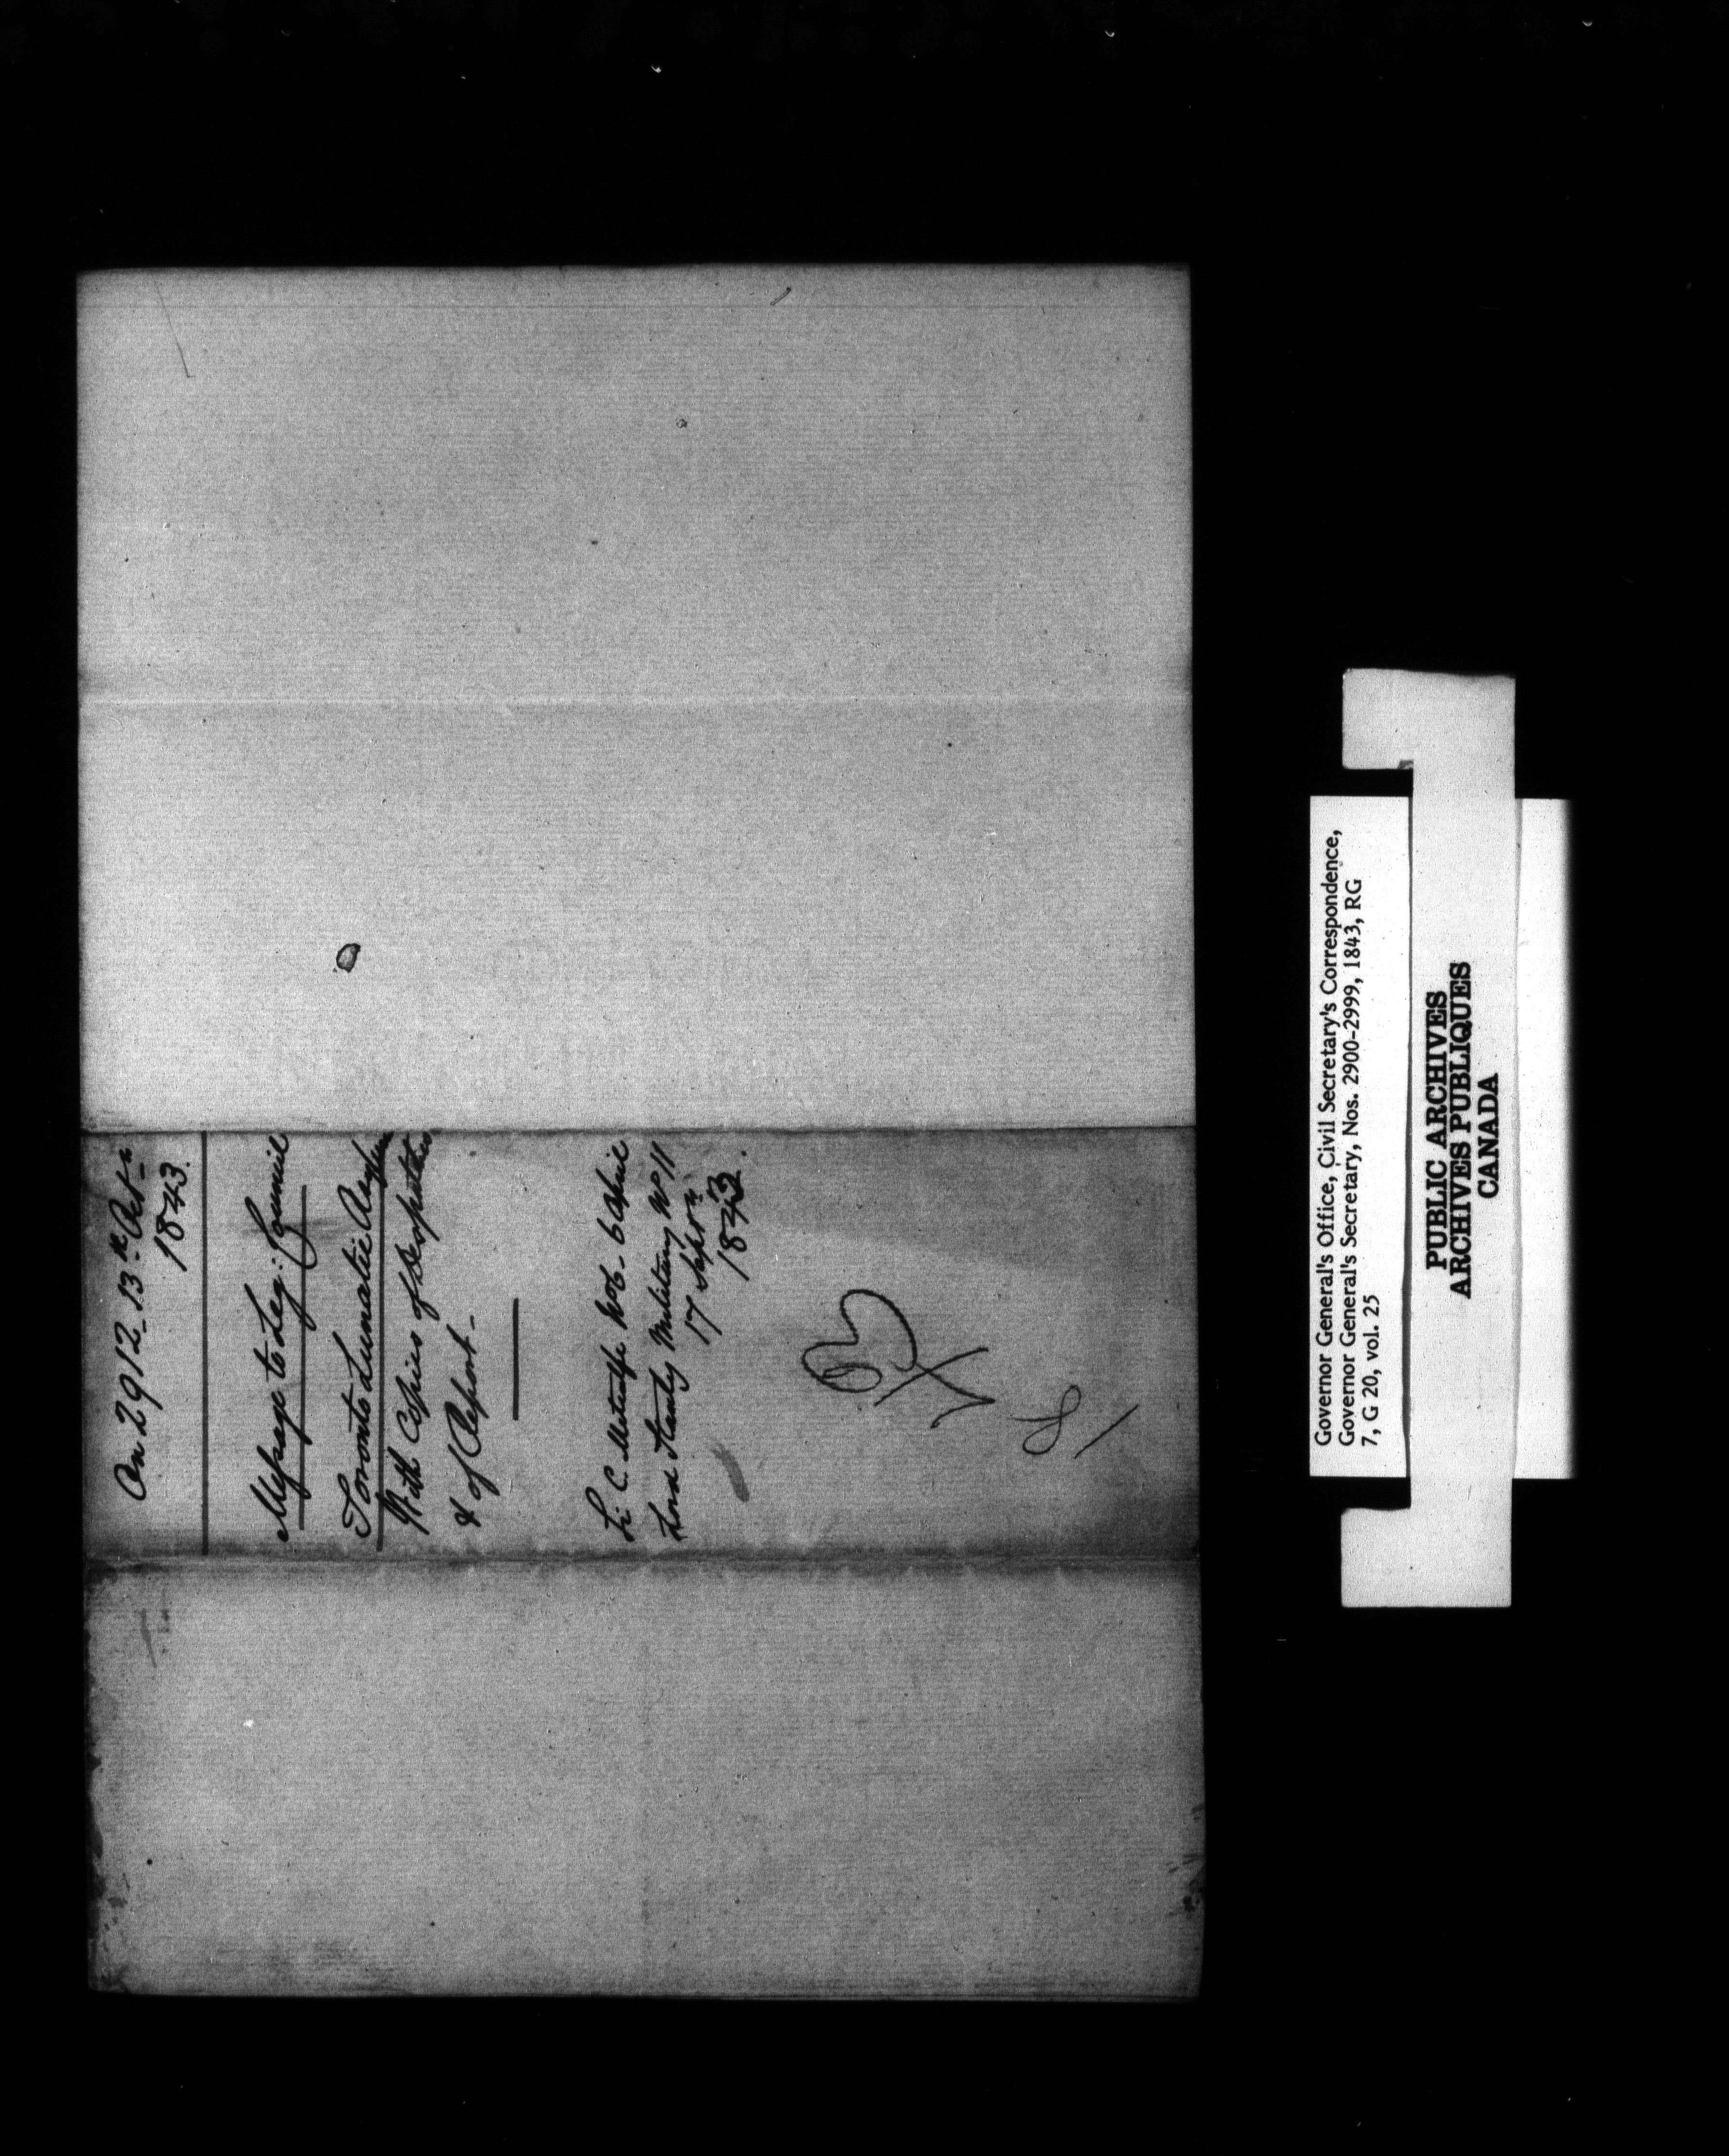 On 2912_13th Octr
1843.
Message to Leg: Council
Toronto Lunatic Asylum
With Copies of Despatches
& of Report_
Sir C. Metcalfe No 6_ 6 April
Lord Stanley Military No 11
17 Septr
1843.
Governor General's Office, Civil Secretary's Correspondence,
Governor General's Secretary, Nos. 2900-2999, 1843, RG
7, G 20, vol. 25
PUBLIC ARCHIVES
ARCHIVES PUBLIQUES
CANADA